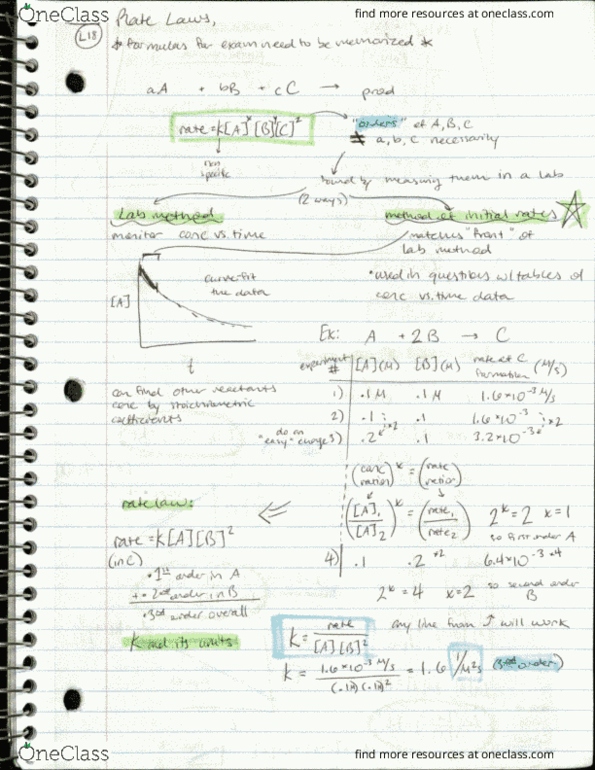 OneClass
find more resources at oneclass.com
L18
Rate Laws,
* formulas for exam need to be memorized *
aA + bB + cC → prod
rate = k[A]^x [B]^y [C]^z
"orders" of A, B, C
≠ a, b, c necessarily
found by measuring them in a lab
(2 ways)
Lab method
method of initial rates
monitor conc vs. time
matches "front" of
lab method
[A]
curve-fit
the data
t
• used in questions w/ tables of
conc vs. time data
Ex: A + 2B → C
experiment # [A](M) [B](M) rate of C formation (M/s)
1) .1 M .1 M 1.6×10^-3 M/s
2) .1 .1 1.6×10^-3
3) .2 .1 3.2×10^-3
×2 ×2
can find other reactants
conc by stoichiometric
coefficients
do an "easy" change
(conc ratios)^x = (rate ratios)
([A]1/[A]2)^x = (rate1/rate2) 2^x = 2 x = 1
so first order A
rate law:
rate = k[A][B]^2
(in C)
• 1st order in A
+ • 2nd order in B
• 3rd order overall
4) .1 .2 ×2 6.4×10^-3 ×4
2^x = 4 x = 2 so second order B
k and its units
k = rate/[A][B]^2 any line from ↑ will work
k = 1.6×10^-3 M/s / (.1M)(.1M)^2 = 1.6 1/M²s (3rd order)
OneClass
find more resources at oneclass.com